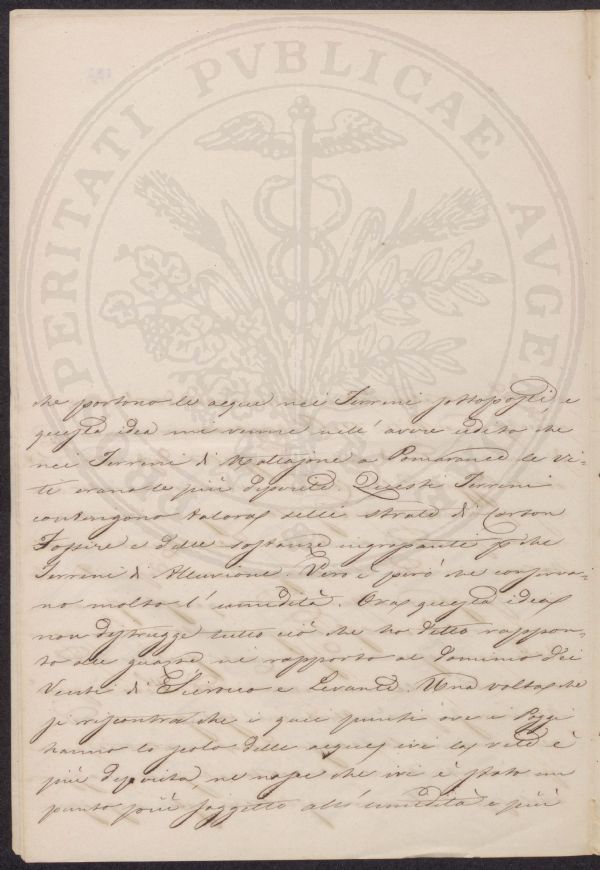 PERITATI PVBLICAE AVGE
che portono le acque nei Terreni sottoposti, e
questa idea mi venne nell' avere udito che
nei Terreni di Mattajone a Pomarance le vi=
ti erano le più deperite. Questi Terreni
contengono talora delli strati di Carbon
Fossire e delle sostanze ingrassanti p che
Terreni di Alluvione. Vero è però che conserva=
no molto l' umidità. Ora questa idea
non distrugge tutto ciò che ho detto rappor=
to alle guaste nè rapporto al dominio dei
Venti di Scirocco e Levante. Una volta che
si riscontra che i quei punti ove i Poggi
hanno lo scolo delle acque, ivi la vite è
più deperita, ne nasce che ivi è stato un
punto più soggetto all' umidità e più